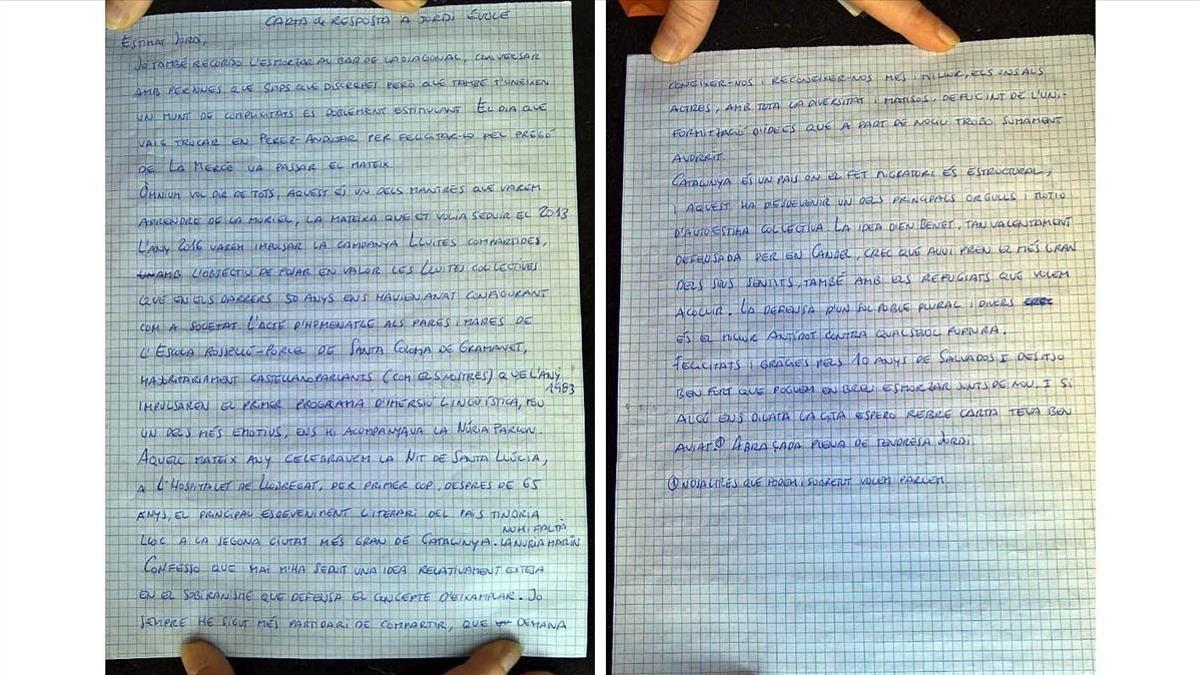 CARTA de RESPOSTA A JORDI ÉVOLE
ESTIMAT JORDI,
JO TAMBÉ RECORDO L'ESMORZAR AL BAR DE LA DIAGONAL, CONVERSAR
AMB PERSONES QUE SAPS QUE DISCREPES PERÒ QUE TAMBÉ T'UNEIXEN
UN MUNT DE COMPLICITATS ES DOBLEMENT ESTIMULANT. EL DIA QUE
VAIG TRUCAR EN PEREZ-ANDUJAR PER FELICITAR-LO PEL PREGÓ
DE LA MERCÈ VA PASSAR EL MATEIX.
ÒMNIUM VOL DIR DE TOTS, AQUEST ÉS UN DELS MANTRES QUE VAREM
APRENDRE DE LA MURIEL, LA MATEIXA QUE ET VOLIA SEDUIR EL 2013
L'ANY 2016 VAREM IMPULSAR LA CAMPANYA LLUITES COMPARTIDES,
AMB L'OBJECTIU DE POSAR EN VALOR LES LLUITES COL·LECTIVES
QUE EN ELS DARRERS 50 ANYS ENS HAVIEN ANAT CONFIGURANT
COM A SOCIETAT. L'ACTE D'HOMENATGE ALS PARES I MARES DE
L'ESCOLA ROSSELLÓ-PORCEL DE SANTA COLOMA DE GRAMANET,
MAJORITARIAMENT CASTELLANOPARLANTS (COM ELS NOSTRES) QUE L'ANY 1983
IMPULSAREN EL PRIMER PROGRAMA D'IMERSIÓ LINGÜÍSTICA, FOU
UN DELS MÉS EMOTIUS, ENS HI ACOMPANYAVA LA NÚRIA PARLON.
AQUELL MATEIX ANY CELEBRAVEM LA NIT DE SANTA LLÚCIA,
A L'HOSPITALET DE LLOBREGAT, PER PRIMER COP, DESPRES DE 65
ANYS, EL PRINCIPAL ESDEVENIMENT LITERARI DEL PAIS TINDRIA
LLOC A LA SEGONA CIUTAT MÉS GRAN DE CATALUNYA. NO HI FALTÀ LA NURIA MARIN
CONFESSO QUE MAI M'HA SEDUIT UNA IDEA RELATIVAMENT ESTESA
EN EL SOBIRANISME QUE DEFENSA EL CONCEPTE D'EIXAMPLAR. JO
SEMPRE HE SIGUT MÉS PARTIDARI DE COMPARTIR, QUE DEMANA
CONEIXER-NOS I RECONEIXER-NOS MÉS I MILLOR, ELS UNS ALS
ALTRES, AMB TOTA LA DIVERSITAT I MATISOS, DEFUGINT DE L'UNI-
FORMITZACIÓ D'IDEES QUE A PART DE NOCIU TROBO SUMAMENT
AVORRIT.
CATALUNYA ÉS UN PAIS ON EL FET MIGRATORI ÉS ESTRUCTURAL,
I AQUEST HA ESDEVENIR UN DELS PRINCIPALS ORGULLS I MOTIU
D'AUTOESTIMA COL·LECTIVA. LA IDEA D'EN BENET, TAN VALENTAMENT
DEFENSADA PER EN CANDEL, CREC QUE AVUI PREN EL MÉS GRAN
DELS SEUS SENTITS, TAMBÉ AMB ELS REFUGIATS QUE VOLEM
ACOLLIR. LA DEFENSA D'UN SOL POBLE PLURAL I DIVERS
ÉS EL MILLOR ANTÍDOT CONTRA QUALSEVOL RUPTURA.
FELICITATS I GRÀCIES PELS 10 ANYS DE SALVADOS I DESITJO
BEN FORT QUE POGUEM EN BREU ESMORZAR JUNTS DE NOU. I SI
ALGÚ ENS DILATA LA CITA ESPERO REBRE CARTA TEVA BEN
AVIAT.① ABRAÇADA PLENA DE TENDRESA JORDI
① NOSALTRES QUE PODEM I SOBRETOT VOLEM PARLEM